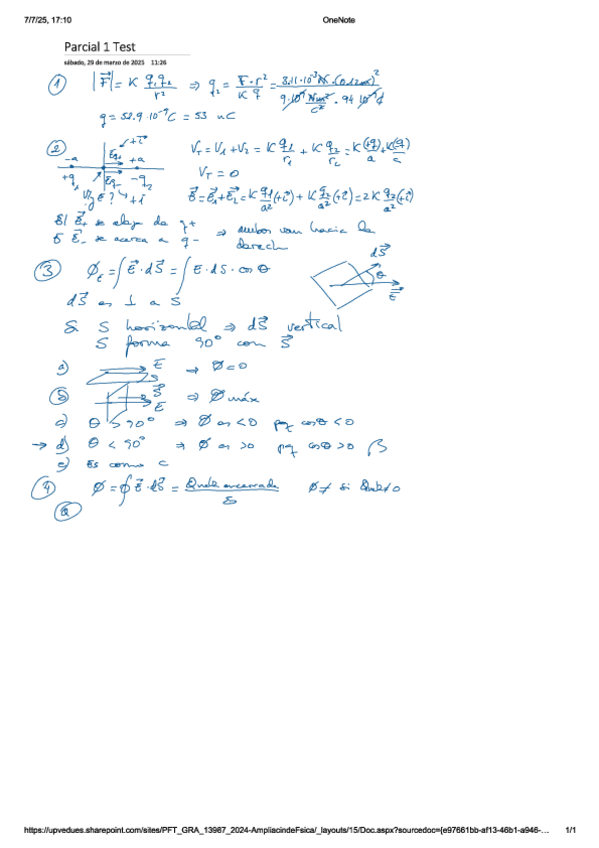 7/7/25, 17:10 OneNote
Parcial 1 Test
sábado, 29 de marzo de 2025 11:26
① |F⃗| = K q₁q₂/r² ⇒ q₂ = F·r²/(K q) = 3.11·10⁻³ N·(0.12m)²/(9·10⁹ Nm²/C² · 94·10⁻⁹ C)
q = 52.9·10⁻⁹ C = 53 nC
② V_T = V₁ + V₂ = K q₁/r₁ + K q₂/r₂ = K(+q)/a + K(-q)/a
-a +a
+q₁ -q₂
V_T = 0
E⃗ = E⃗₁ + E⃗₂ = K q₁/a² (+i⃗) + K q₂/a² (+i⃗) = 2K q₂/a² (+i⃗)
El E⃗₊ se aleja de q+ ⇒ ambos van hacia la
E⃗₋ se acerca a q- derech
③ Φ_E = ∫ E⃗·dS⃗ = ∫ E·dS·cos θ
dS⃗ θ E⃗
dS⃗ es ⊥ a S
Si S horizontal ⇒ dS⃗ vertical
S forma 90° con S⃗
a) E⃗ S → Ø=0
ⓑ S⃗ E⃗ ⇒ Ø máx
c) θ > 90° ⇒ Ø es <0 pq cosθ <0
→ d) θ < 90° ⇒ Ø es >0 pq cosθ >0
e) Es como c
④ Ø = ∮ E⃗·dS⃗ = Qneta encerrada/ε Ø≠ si Qneta≠0
ⓐ
https://upvedues.sharepoint.com/sites/PFT_GRA_13987_2024-AmpliacindeFsica/_layouts/15/Doc.aspx?sourcedoc={e97661bb-af13-46b1-a946-… 1/1